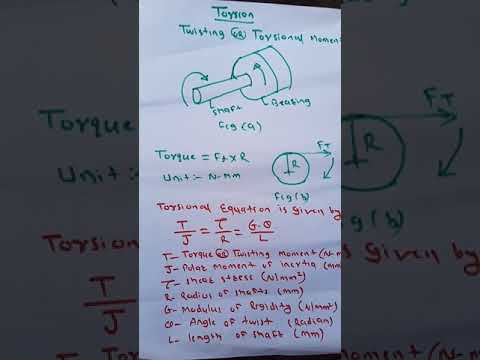 Torsion
Twisting OR Torsional Moment
Shaft
Bearing
Fig(a)
Torque = Ft x R
Unit :- N-mm
FT
R
Fig(b)
Torsional Equation is given by
T/J = τ/R = G·θ/L
T- Torque OR Twisting Moment (N-m
J- Polar Moment of inertia (mm
τ- Shear stress (N/mm²)
R- Radius of shafts (mm)
G- Modulus of Rigidity (N/mm²)
θ- Angle of twist (Radian)
L- length of shaft (mm)